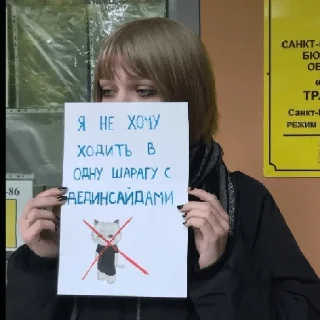 Я НЕ ХОЧУ
ХОДИТЬ В
ОДНУ ШАРАГУ С
ДЕДИНСАЙДАМИ
САНКТ-
БЮ
ОБ
ТР
Санкт-
РЕЖИМ
-86